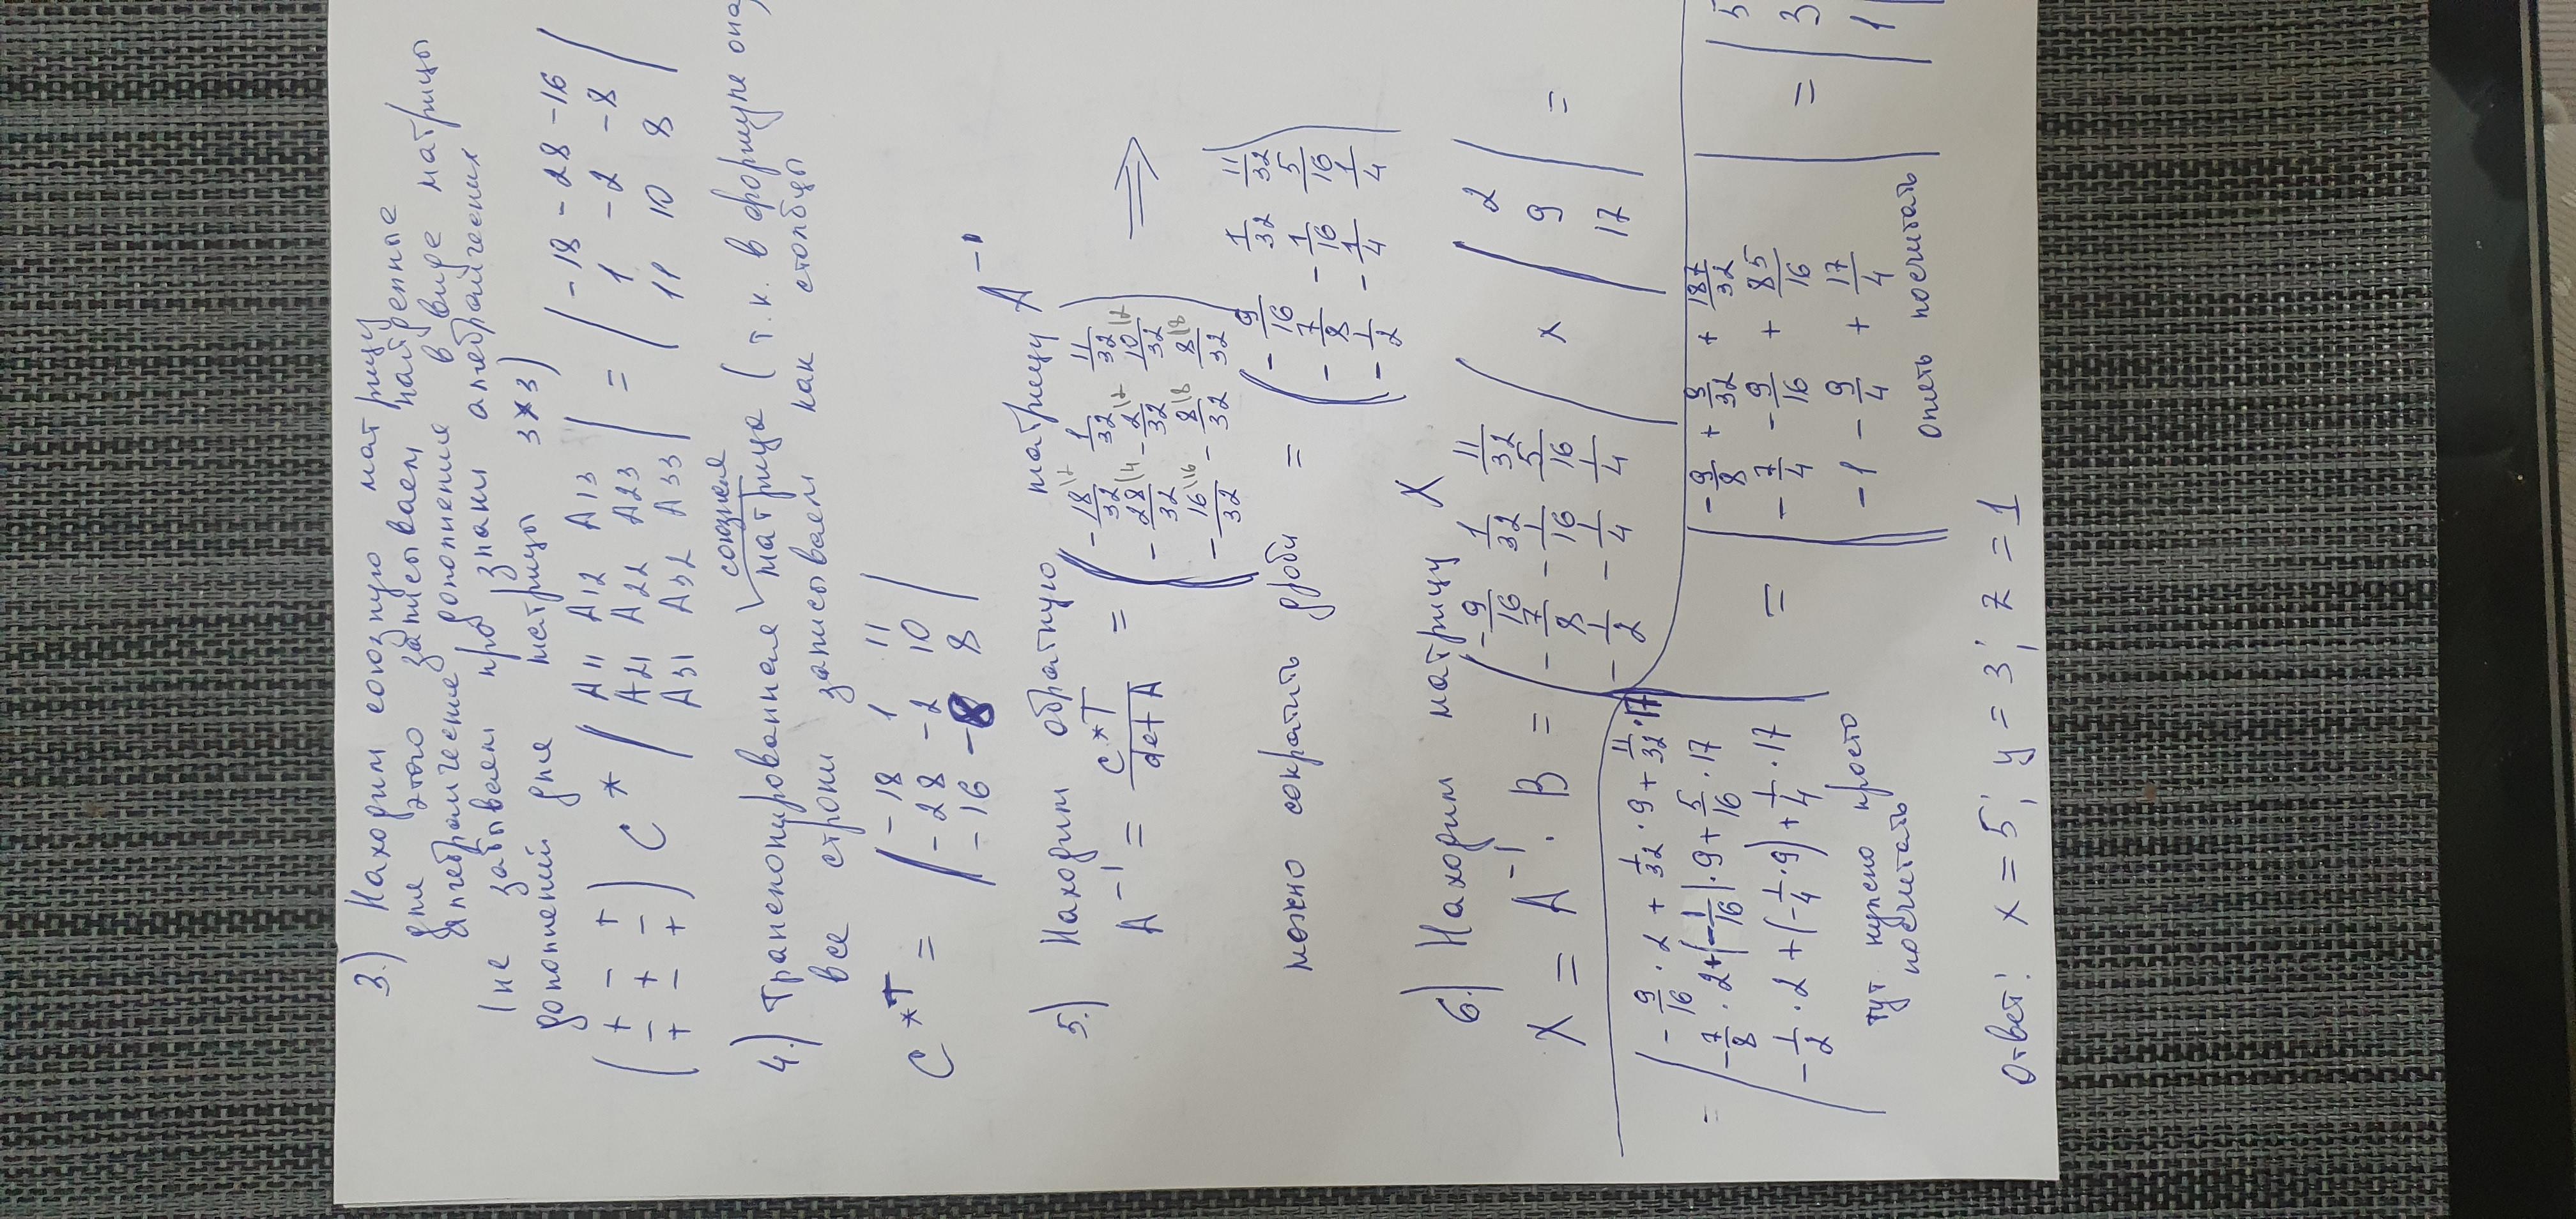 3.) Находим союзную матрицу
для этого записываем найденные
алгебраические дополнение в виде матрицы
(не забываем про знаки алгебраических
дополнений для матрицы 3×3)
( + - +
- + -
+ - + ) C * ( A11 A12 A13
A21 A22 A23
A31 A32 A33 ) = ( -18 -28 -16
1 -2 -8
11 10 8 )
4.) Транспонированная союзная матрица ( т.к. в формуле она)
все строки записываем как столбцы
C*T = ( -18 1 11
-28 -2 10
-16 -8 8 )
5.) Находим обратную матрицу A^-1
A^-1 = C*T / det A = ( -18/32 1/32 11/32
-28/32 -2/32 10/32
-16/32 -8/32 8/32 ) ⇒
можно сократить дроби = ( -9/16 1/32 11/32
-7/8 -1/16 5/16
-1/2 -1/4 1/4 )
6.) Находим матрицу X
X = A^-1 · B = ( -9/16 1/32 11/32
-7/8 -1/16 5/16
-1/2 -1/4 1/4 ) × ( 2
9
17 ) =
= ( -9/16 · 2 + 1/32 · 9 + 11/32 · 17
-7/8 · 2 + (-1/16) · 9 + 5/16 · 17
-1/2 · 2 + (-1/4 · 9) + 1/4 · 17 )
тут нужно просто
посчитать
= ( -9/8 + 9/32 + 187/32
-7/4 - 9/16 + 85/16
-1 - 9/4 + 17/4 ) = ( 5
3
1
опять посчитать
Ответ: x = 5; y = 3; z = 1